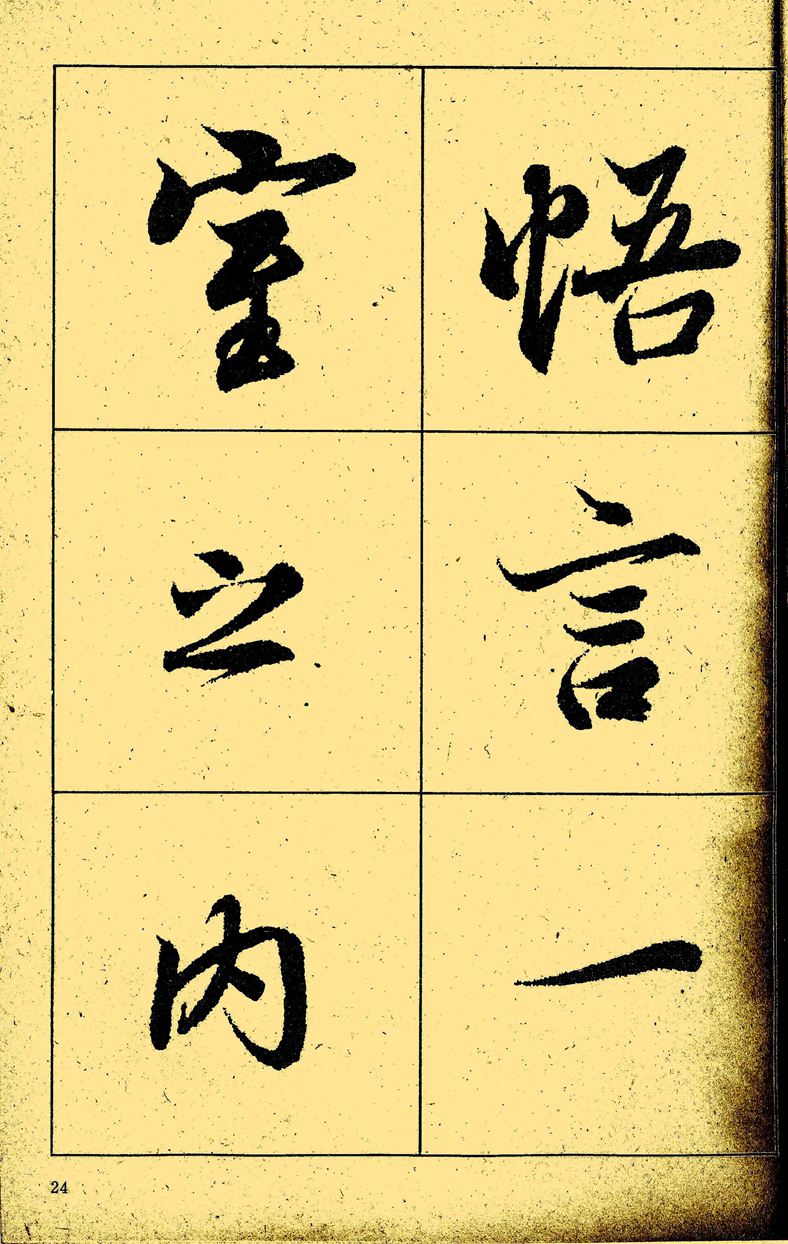 悟言一
室之内
24